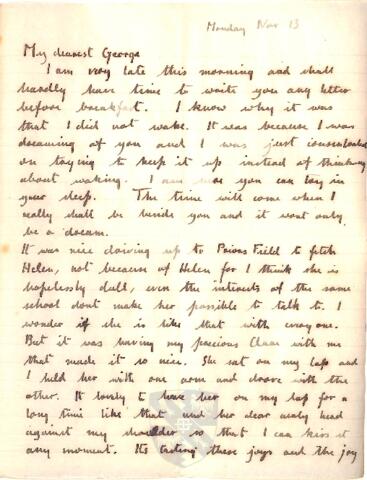 Monday Nov 13
My dearest George
I am very late this morning and shall
hardly have time to write you any letter
before breakfast. I know why it was
that I did not wake. It was because I was
dreaming of you and I was just concentrated
on trying to keep it up instead of thinking
about waking. I am sure you can try in
your sleep. The time will come when I
really shall be beside you and it wont only
be a dream.
It was nice driving up to Priors Field to fetch
Helen, not because of Helen for I think she is
hopelessly dull, even the interests of the same
school dont make her possible to talk to. I
wonder if she is like that with everyone.
But it was having my precious Clare with me
that made it so nice. She sat on my lap and
I held her with one arm and drove with the
other. It lovely to have her on my lap for a
long time like that and her dear head
against my shoulder so that I can kiss it
any moment. Its tasting these joys and the joy